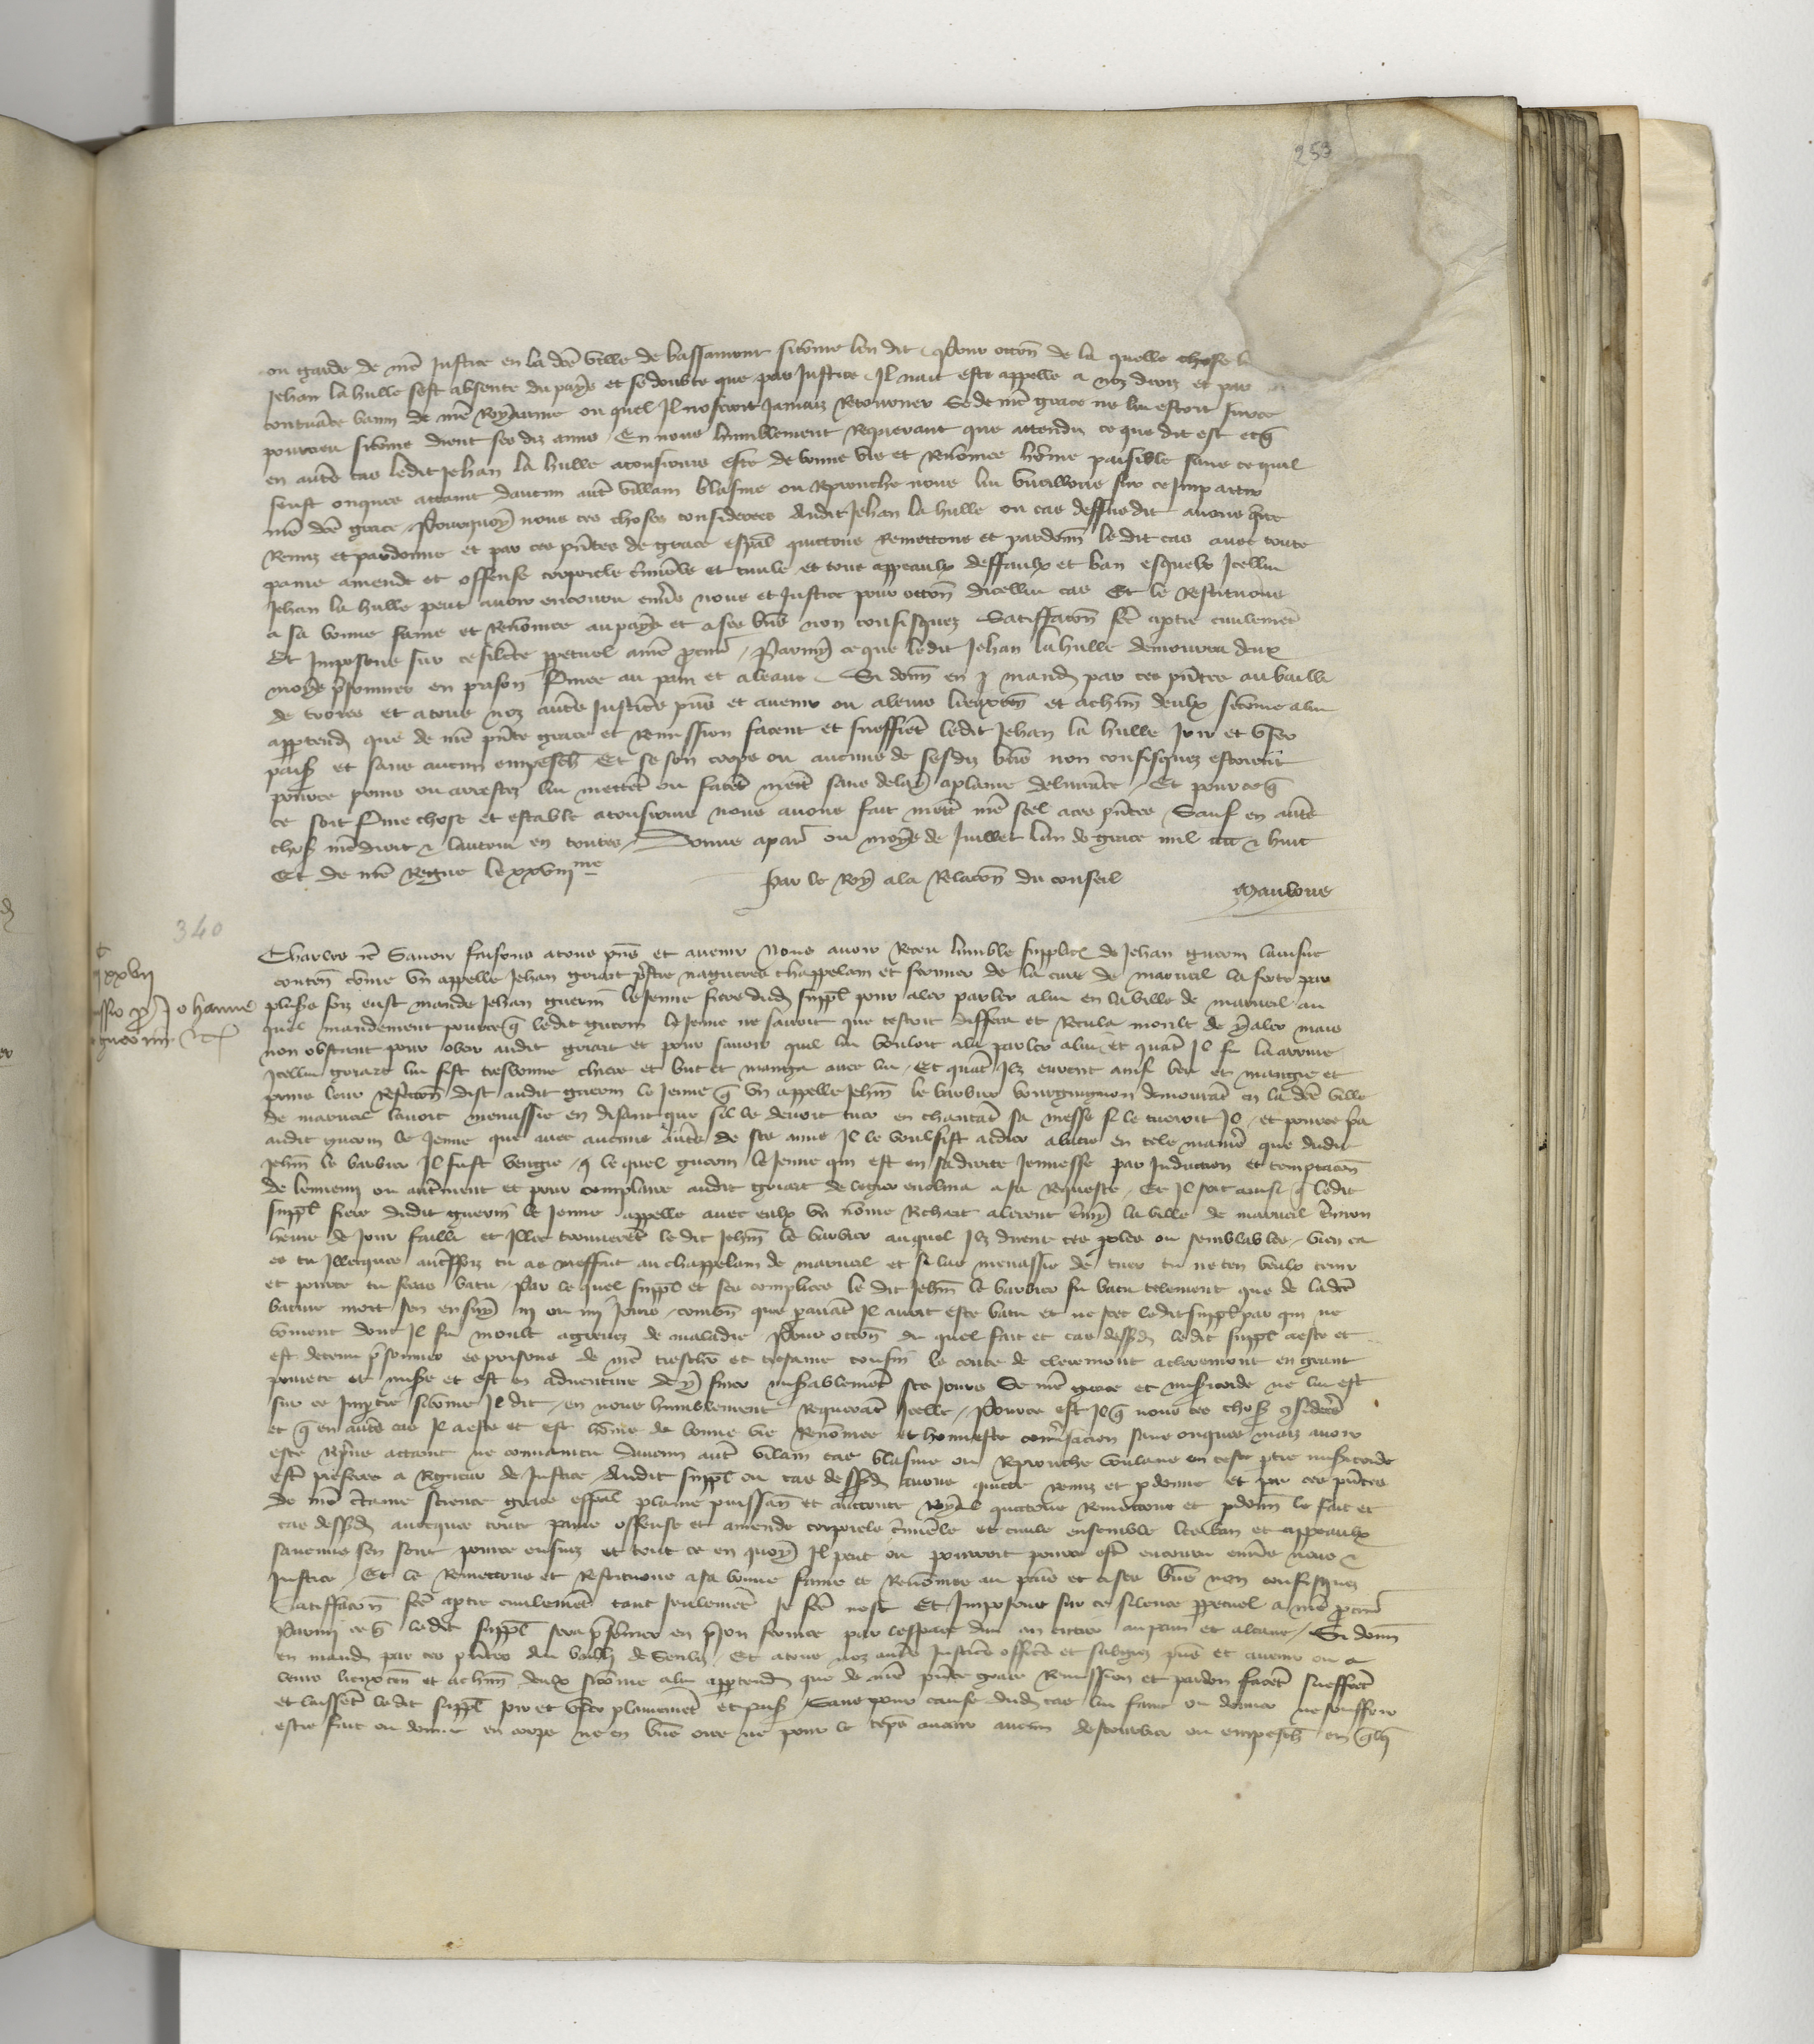 253
ou garde de nre justice en la dce ville de bassamont sicome len dit Pour occon de la quelle chose l
Jehan la hulle sest absente du pays et se doubte que par justice il nait este appelle a noz droiz et par
contumace banni de nre Royaume ou quel il noseroit jamaiz Retourner Se de nre grace ne lui estoit sur ce
pourveu sicome dient ses diz amis En nous humblement Requerant que attendu ce que dit est et q
en autres cas ledit Jehan la hulle a tousjours este de bonne vie et Renomee home paisible sans ce quil
feust onques attaint daucun autre villain blasme ou Reprouche nous lui vueillons sur ce impartir
nre dce grace Pourquoy nous ces choses considerees Audit Jehan la hulle ou cas dessus dit avons quicte
Remis et pardonne et par ces pntes de grace espal quictons Remettons et pardonn le dit cas avec toute
paine amende et offense corporele criminele et civile et tous appeaulx deffaulx et ban esquelx Icellui
Jehan la hulle peut avoir encouru envers nous et justice pour occon dicellui cas Et le Restituons
a sa bonne fame et Renomee au pays et a ses biens non confisquez Satiffaccon fce a ptie civilement
Et Imposons sur ce silence ppetuel a nre procur Parmy ce que ledit Jehan la hulle demourra deux
moys prisonnier en prison fermee au pain et a leaue Si donn en mand par ces pntes au bailli
de troies et a tous noz autres justiciers pns et avenir ou a leurs lieuxten et a chun deulx sicome a lui
apptend que de nre pnte grace et remission facent et sueffrent ledit Jehan la hulle joir et user
paisib et sans aucun empesch Et se son corps ou aucuns de sesdiz biens non confisquez estoient
pour ce prins ou arrestez lui mettent ou facent mettre sans delay a plaine delivrance Et pour ce q
ce soit ferme chose et estable a tousjours nous avons fait mettre nre seel a ces pntes Sauf en autres
chos nre droit & lautrui en toutes Donne a paris ou moys de Juillet lan de grace mil cccc & huit
Et de nre Regne le xxviii me
Par le Roy a la Relacon du conseil
Mauloue
340
xxvii
Johanne
guerin
Charles &c Savoir faisons a tous pns et avenir Nous avoir Receu lumble supplicacion de Jehan guerin laisne
conten come un appelle Jehan girart prestre nagueres chappelain et fermier de la cure de marueil la ferte par
plusrs foiz eust mande Jehan guerin le Jeune frere dud suppl pour aler parler a lui en la ville de marueil au
quel mandement pour ce q ledit guerin le Jeune ne savoit que cestoit differa et Recula moult de y aler mais
non obstant pour obeir audit girart et pour savoir quil lui vouloit ala parler a lui et quant Il fu la arrive
Icellui girart lui fist tresbonne chiere et but et manga avec lui Et quant Ilz eurent ainsi beu et mangie et
prins leur Refeccon dist audit guerin le Jeune q un appelle Jehan le barbier bourguignon demourant en la dce ville
de marueil lavoit menassie en disant que sil le devoit tuer en chantant sa messe si le tueroit Il et pour ce pria
audit guerin le Jeune que avec aucuns autres de ses amis Il le voulsist aidier a batre en tele maniere que dudit
Jehan le barbier Il fust vengie le quel guerin le Jeune qui est en sa droite Jeunesse par Induction et temptacion
de lennemi ou autrement et pour complaire audit girart de legier enclina a sa Requeste Et Il soit ainsi q ledit
suppl frere dudit guerin le Jeune appelle avec eulx un nome Richart alerent emmy la ville de marueil environ
heure de Jour failli et Illec trouverent le dit Jehan le barbier auquel Ilz dirent ces paroles ou semblables Vien ca
es tu Illecques autresfoiz tu as meffait au chappelain de marueil et si las menassie de tuer tu ne ten veulx tenir
et pour ce tu seras batu Par le quel suppl et ses complices le dit Jehan le barbier fu batu telement que de ladce
bature mort sen ensuy iii ou iiii Jours combn que paravant Il avoit este batu et ne scet ledit suppl par qui ne
coment dont Il fu moult agrevez de maladie Pour occon du quel fait et cas dessusd ledit suppl a este et
est detenu prisonnier es prisons de nre treschier et tresame cousin le conte de cleremont a cleremont en grant
povrete et misere et est en adventure de y finer miserablement ses Jours Se nre grace et misericorde ne lui est
sur ce impartie sicome Il dit en nous humblement Requerant Icelle Pource est Il q nous ces choses considerees
et q en autres cas Il a este et est home de bonne vie Renomee et honneste conversacion sans onques maiz avoir
este Reprins attaint ne convaincu daucun autre vilain cas blasme ou Reprouche voulans en ceste partie misericorde
estre preferee a Rigueur de Justice Audit suppl ou cas dessusd avons quicte remis et pdonne et par ces pntes
de nre certaine science grace espal plaine puissance et auctorite Royal quictons Remettons et pdonn le fait et
cas dessusd avecques toute paine offense et amende corporele criminele et civile ensemble les ban et appeaulx
saucuns sen sont pour ce ensuiz et tout ce en quoy Il peut ou pourroit pour ce estre encouru envers nous &
Justice Et le Remettons et Restituons a sa bonne fame et Renomee au pais et a ses biens non confisquez
Satiffacon fce a ptie civilement tant seulement se fce nest Et Imposons sur ce silence ppetuel a nre procur
Parmi ce q ledit suppl sera prisonnier en prison fermee par lespace dun an entier au pain et a leaue Si donn
en mand par ces pntes Au bailly de Senliz Et a tous noz autres Justiciers officiers et subgiez pns et avenir ou a
leurs lieuxten et a chun deulx sicome a lui apptend que de nre pnte grace Remission et pardon facent sueffrent
et laissent le dit suppl joir et user plainement et paisib Sans pour cause dud cas lui faire ou donner ne souffrir
estre fait ou donne en corps ne en biens ores ne pour le temps avenir aucun destourbier ou empesch en qlq